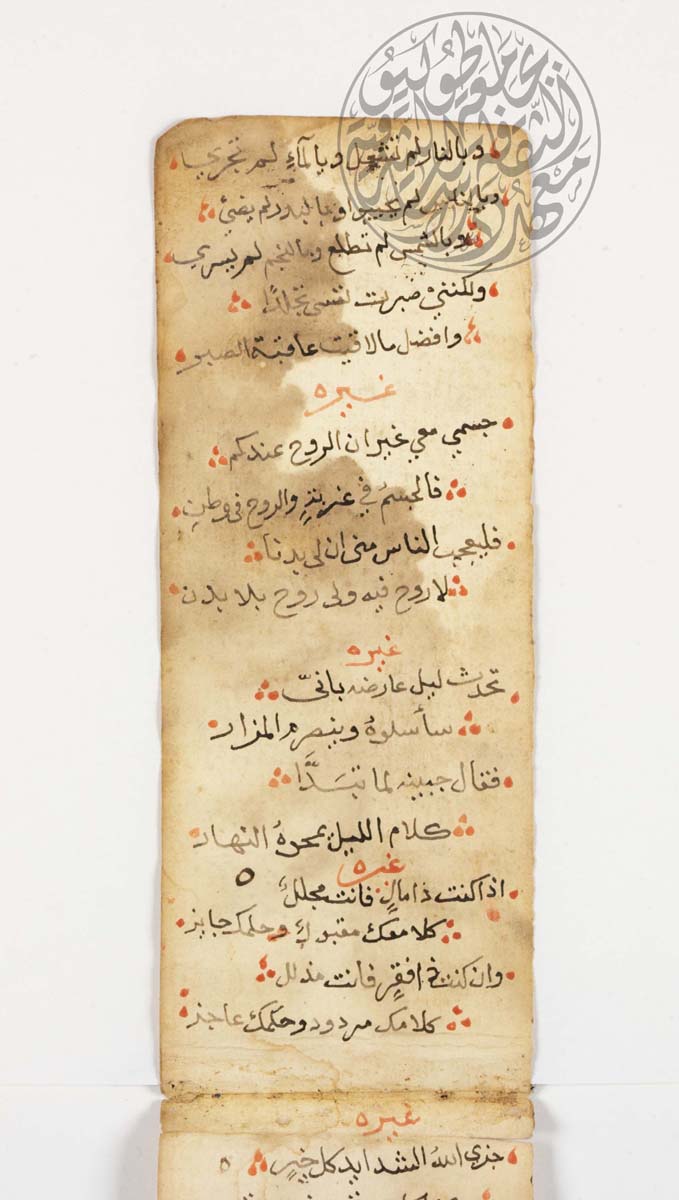 وبالنار لم تشعل وبالمآءِ لم تجري
وبالناس لم يحيوا وبالبدر لم يضئ
وبالشمس لم تطلع وبالنجم لم يسري
ولكنني صبرت نفسي تجلدًا
وافضل ما لاقيت عاقبة الصبر
غيره
جسمي معي غير ان الروح عندكم
فالجسمُ في غربةٍ والروح فى وطن
فليعجب الناس منى ان لى بدنا
لا روح فيه ولى روح بلا بدن
غيره
تحدث ليل عارضه بانىّ
سأسلوهُ وينصرم المزار
فقال جبينه لما تبَدَّا
كلام الليل يمحوهُ النهار
غيره
اذا كنت ذا مالٍ فانت مجللٌ
كلامك مقبولٌ وحكمك جايز
وان كنت ذا فقرٍ فانت مذلل
كلامك مردود وحكمك عاجز
غيره
جزى اللهُ الشدايد كل خيرٍ